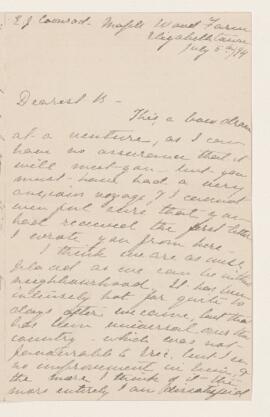 E J Conrad. Maple Wood Farm
Elizabethtown
July 5th/94
Dearest B -
This, a bow drawn
at a venture, as I can
have no assurance that it
will meet you - but you
must have had a very
voyage, & I cannot
even feel sure that you
had received the first letter
I wrote you from here -
I think we are as well
placed as we can be in this
neighbourhood. It has been
intensely hot for quite 10
days after we came, but that
has been universal over the
country - which was not
to but I see
no improvement in him, &
the more I think of it the
more entirely I am dissatisfied